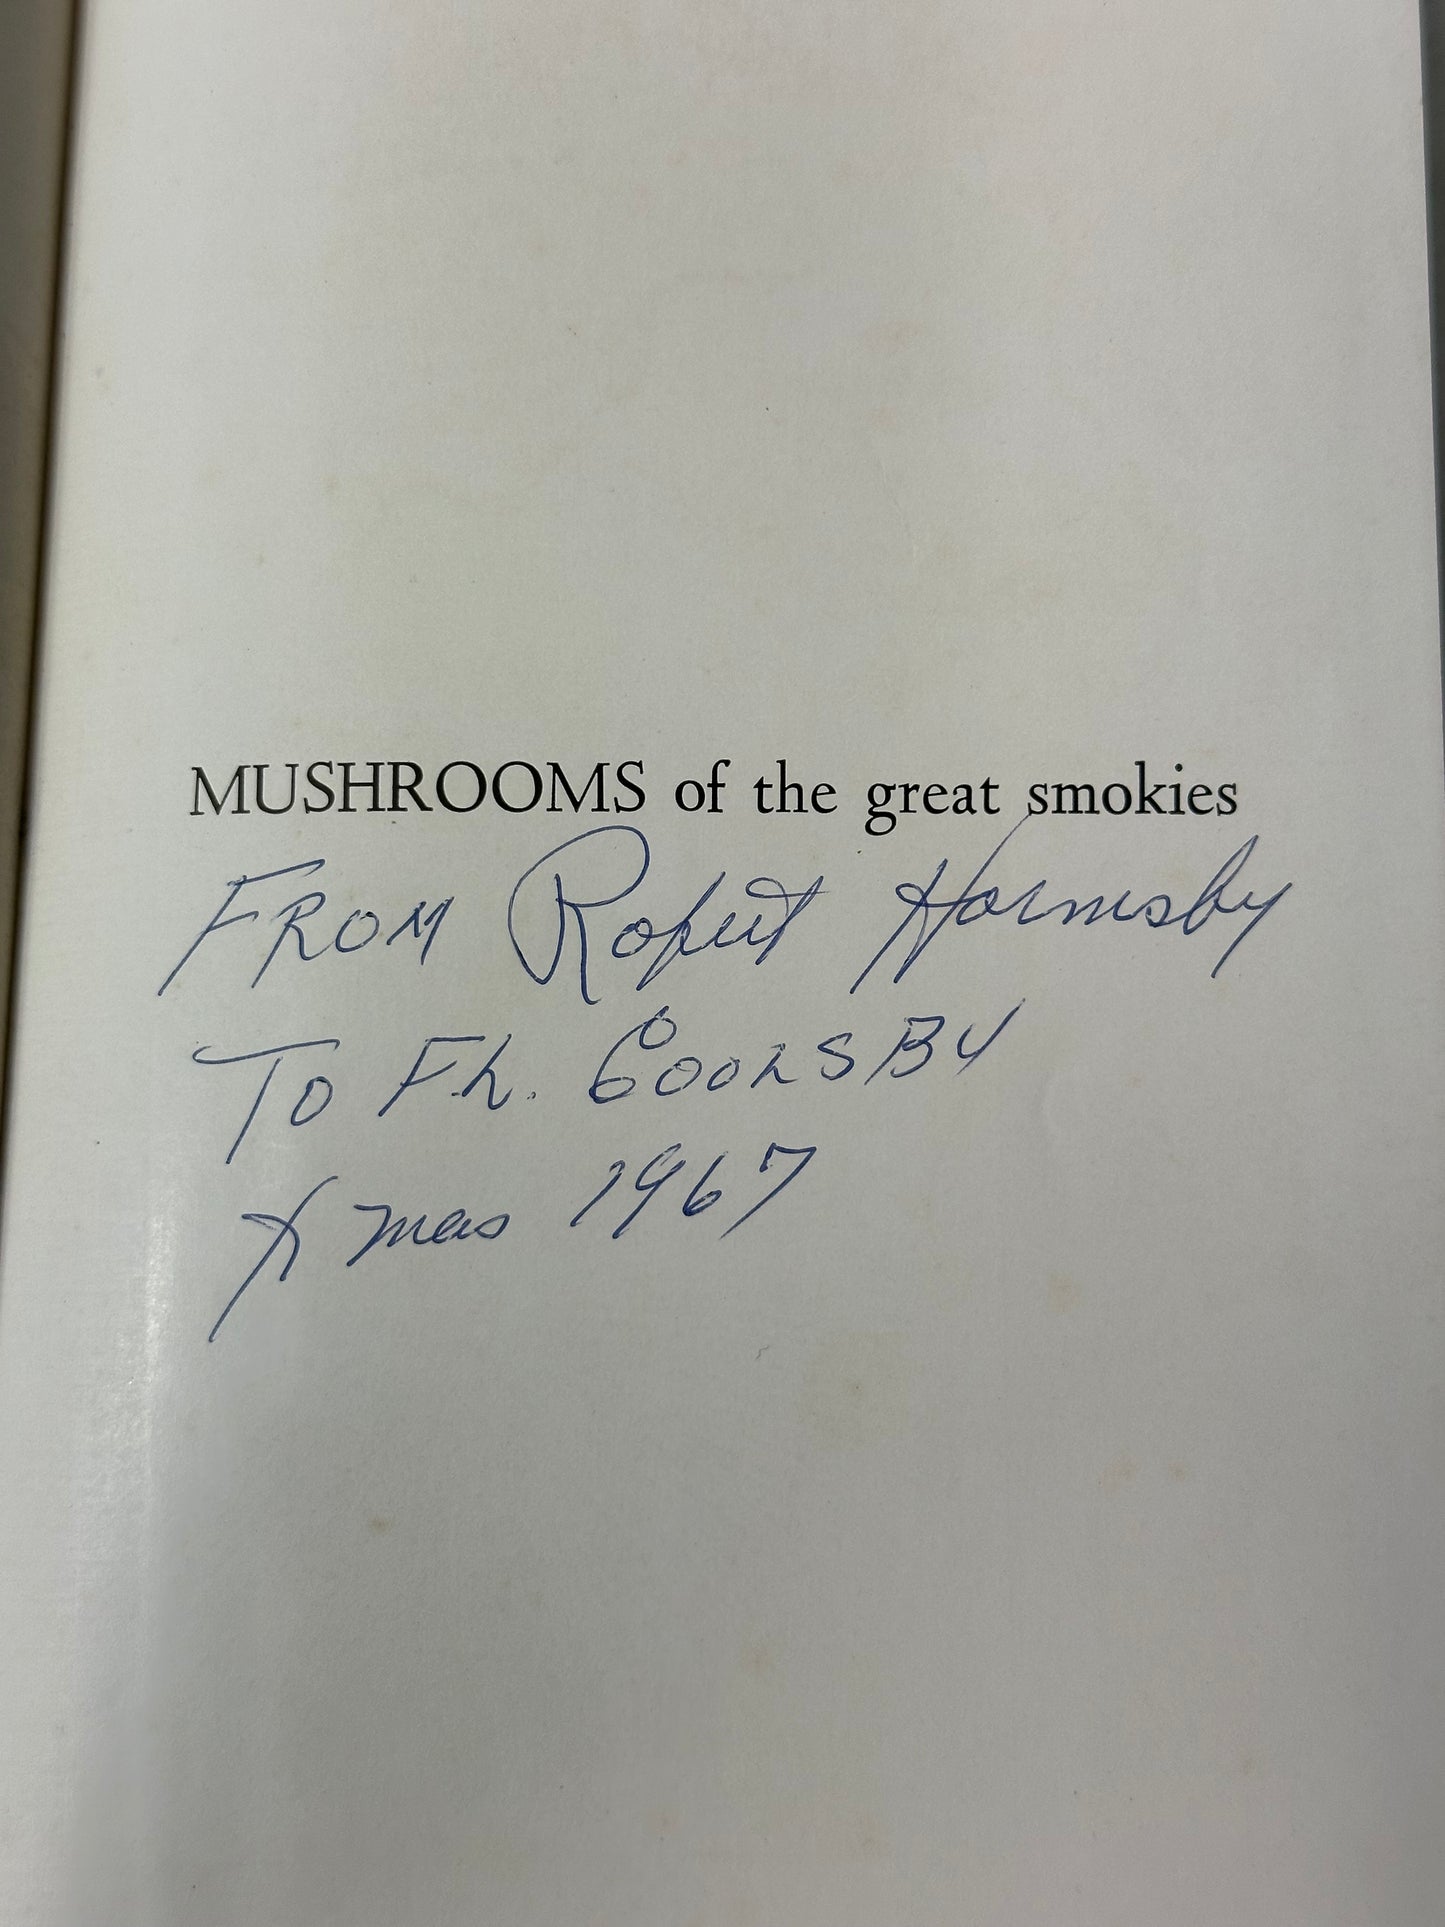 MUSHROOMS of the great smokies
FROM Robert Hornsby
TO F.L. GOOLSBY
Xmas 1967